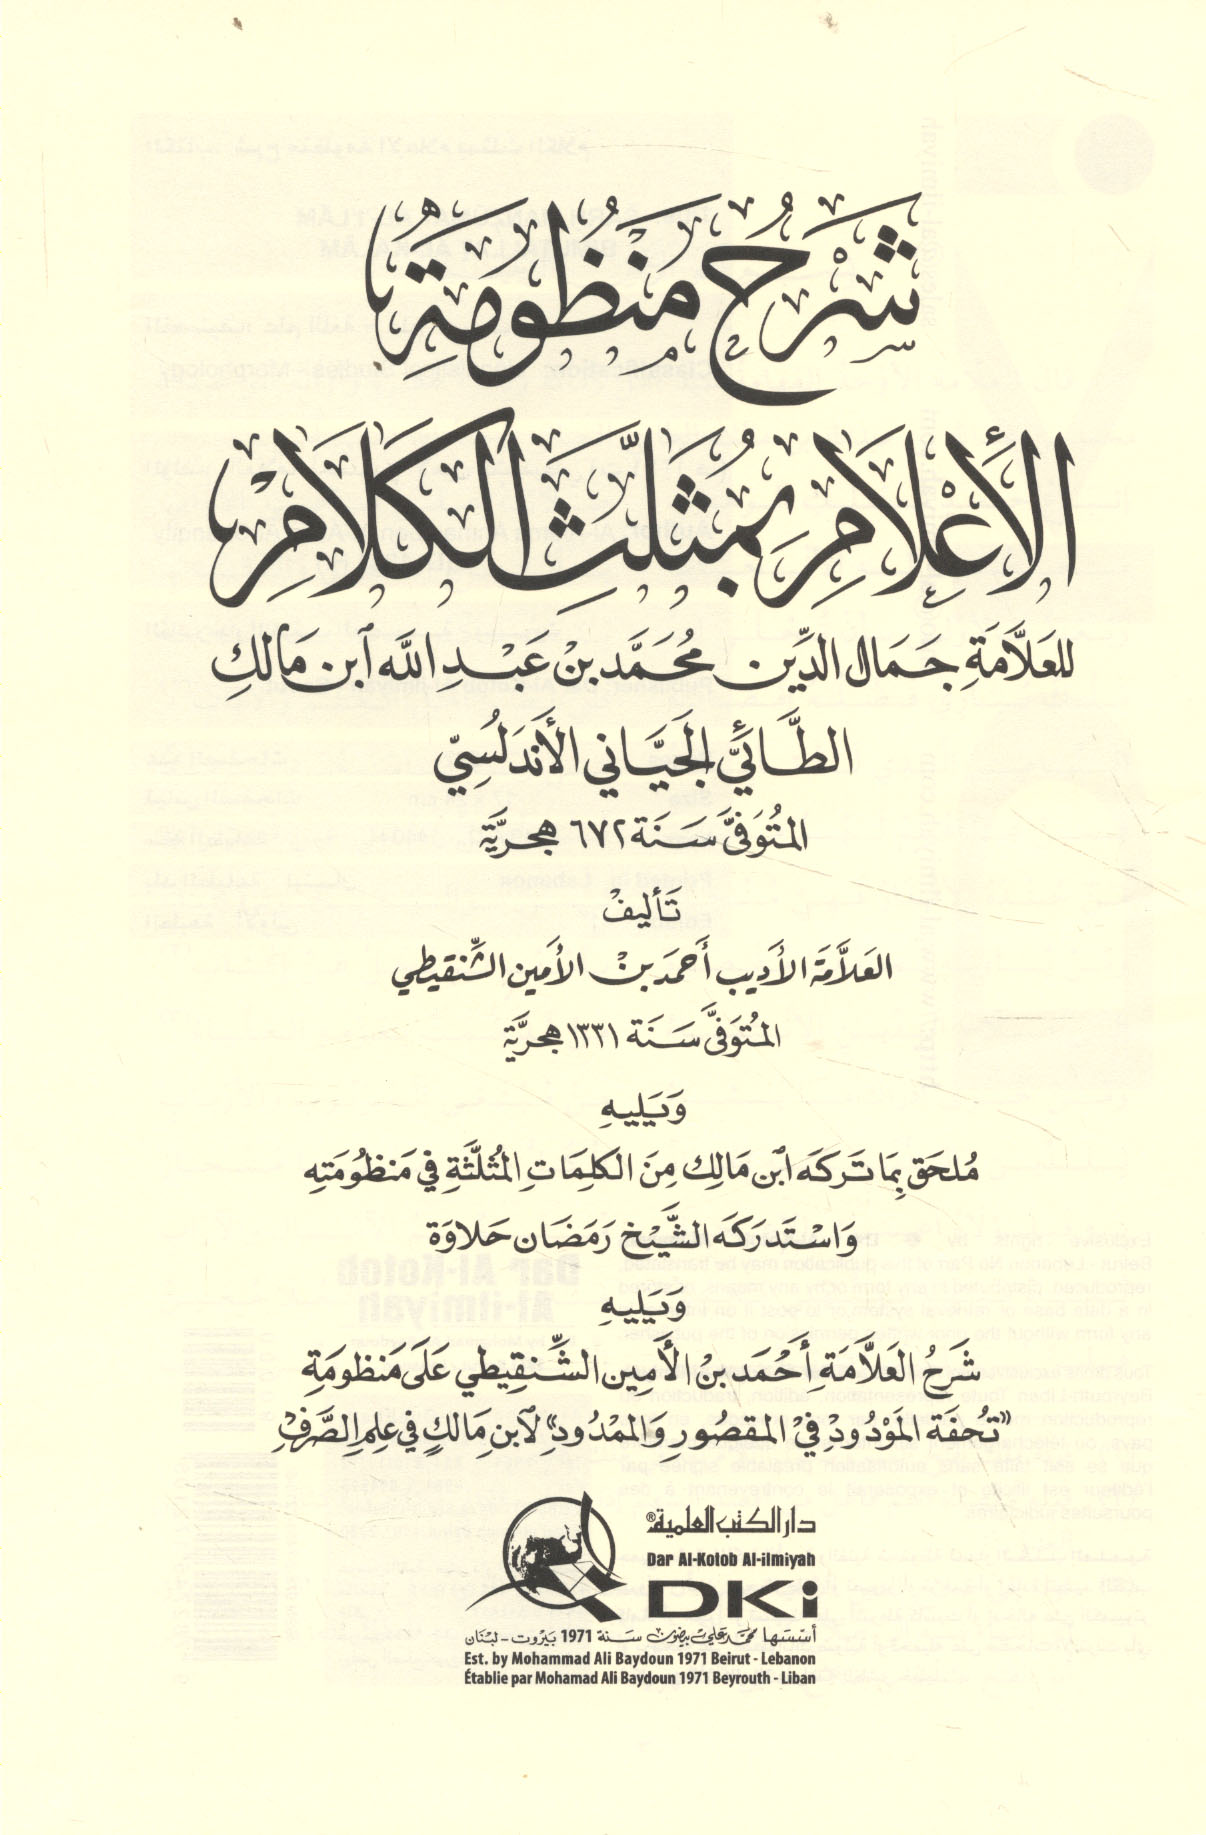 شَرْحُ مَنْظُومَةِ
الأَعْلَامِ بِمُثَلَّثِ الكَلَامِ
للعَلَّامَةِ جَمَال الدِّين مُحَمَّد بنْ عَبْدِ اللَّه ٱبن مَالِكِ
الطَّائيّ الجَيَّاني الأَندَلسُيّ
المُتُوَفىَّ سَنَة ٦٧٢ هجريَّة
تَأليفْ
العَلاَّمَة الأَديب أَحمَد بنْ الأَمين الشِّنقيطي
المُتُوَفىَّ سَنَة ١٣٣١ هجريَّة
وَيَليهِ
مُلحَق بِمَا تَركَه ٱبن مَالِك مِنَ الكلِمَاتِ المُثلَّثَةِ في مَنظُومَتِه
وَاسْتَدرَكَه الشَّيْخ رَمَضَان حَلاوَة
وَيَليهِ
شَرحُ العَلاَّمَةِ أَحْمَد بنْ الأَمِين الشِّنقِيطي عَلَى مَنظومَةِ
«تُحفَة المَوْدُودْ فيْ المَقصُورِ وَالممْدُودِ» لآبنِ مَالكٍ في عِلمِ الصَّرفْ
دار الكتب العلمية®
Dar Al-Kotob Al-ilmiyah
DKi
أسّسَها محمّد علي بيضون سَنة 1971 بَيرُوت - لبْنَان
Est. by Mohammad Ali Baydoun 1971 Beirut - Lebanon
Établie par Mohamad Ali Baydoun 1971 Beyrouth - Liban